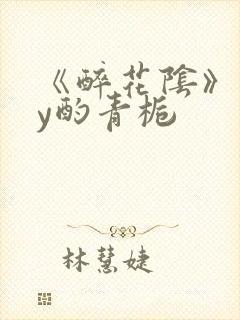 《醉花陰》
y酌青梔
林慧婕